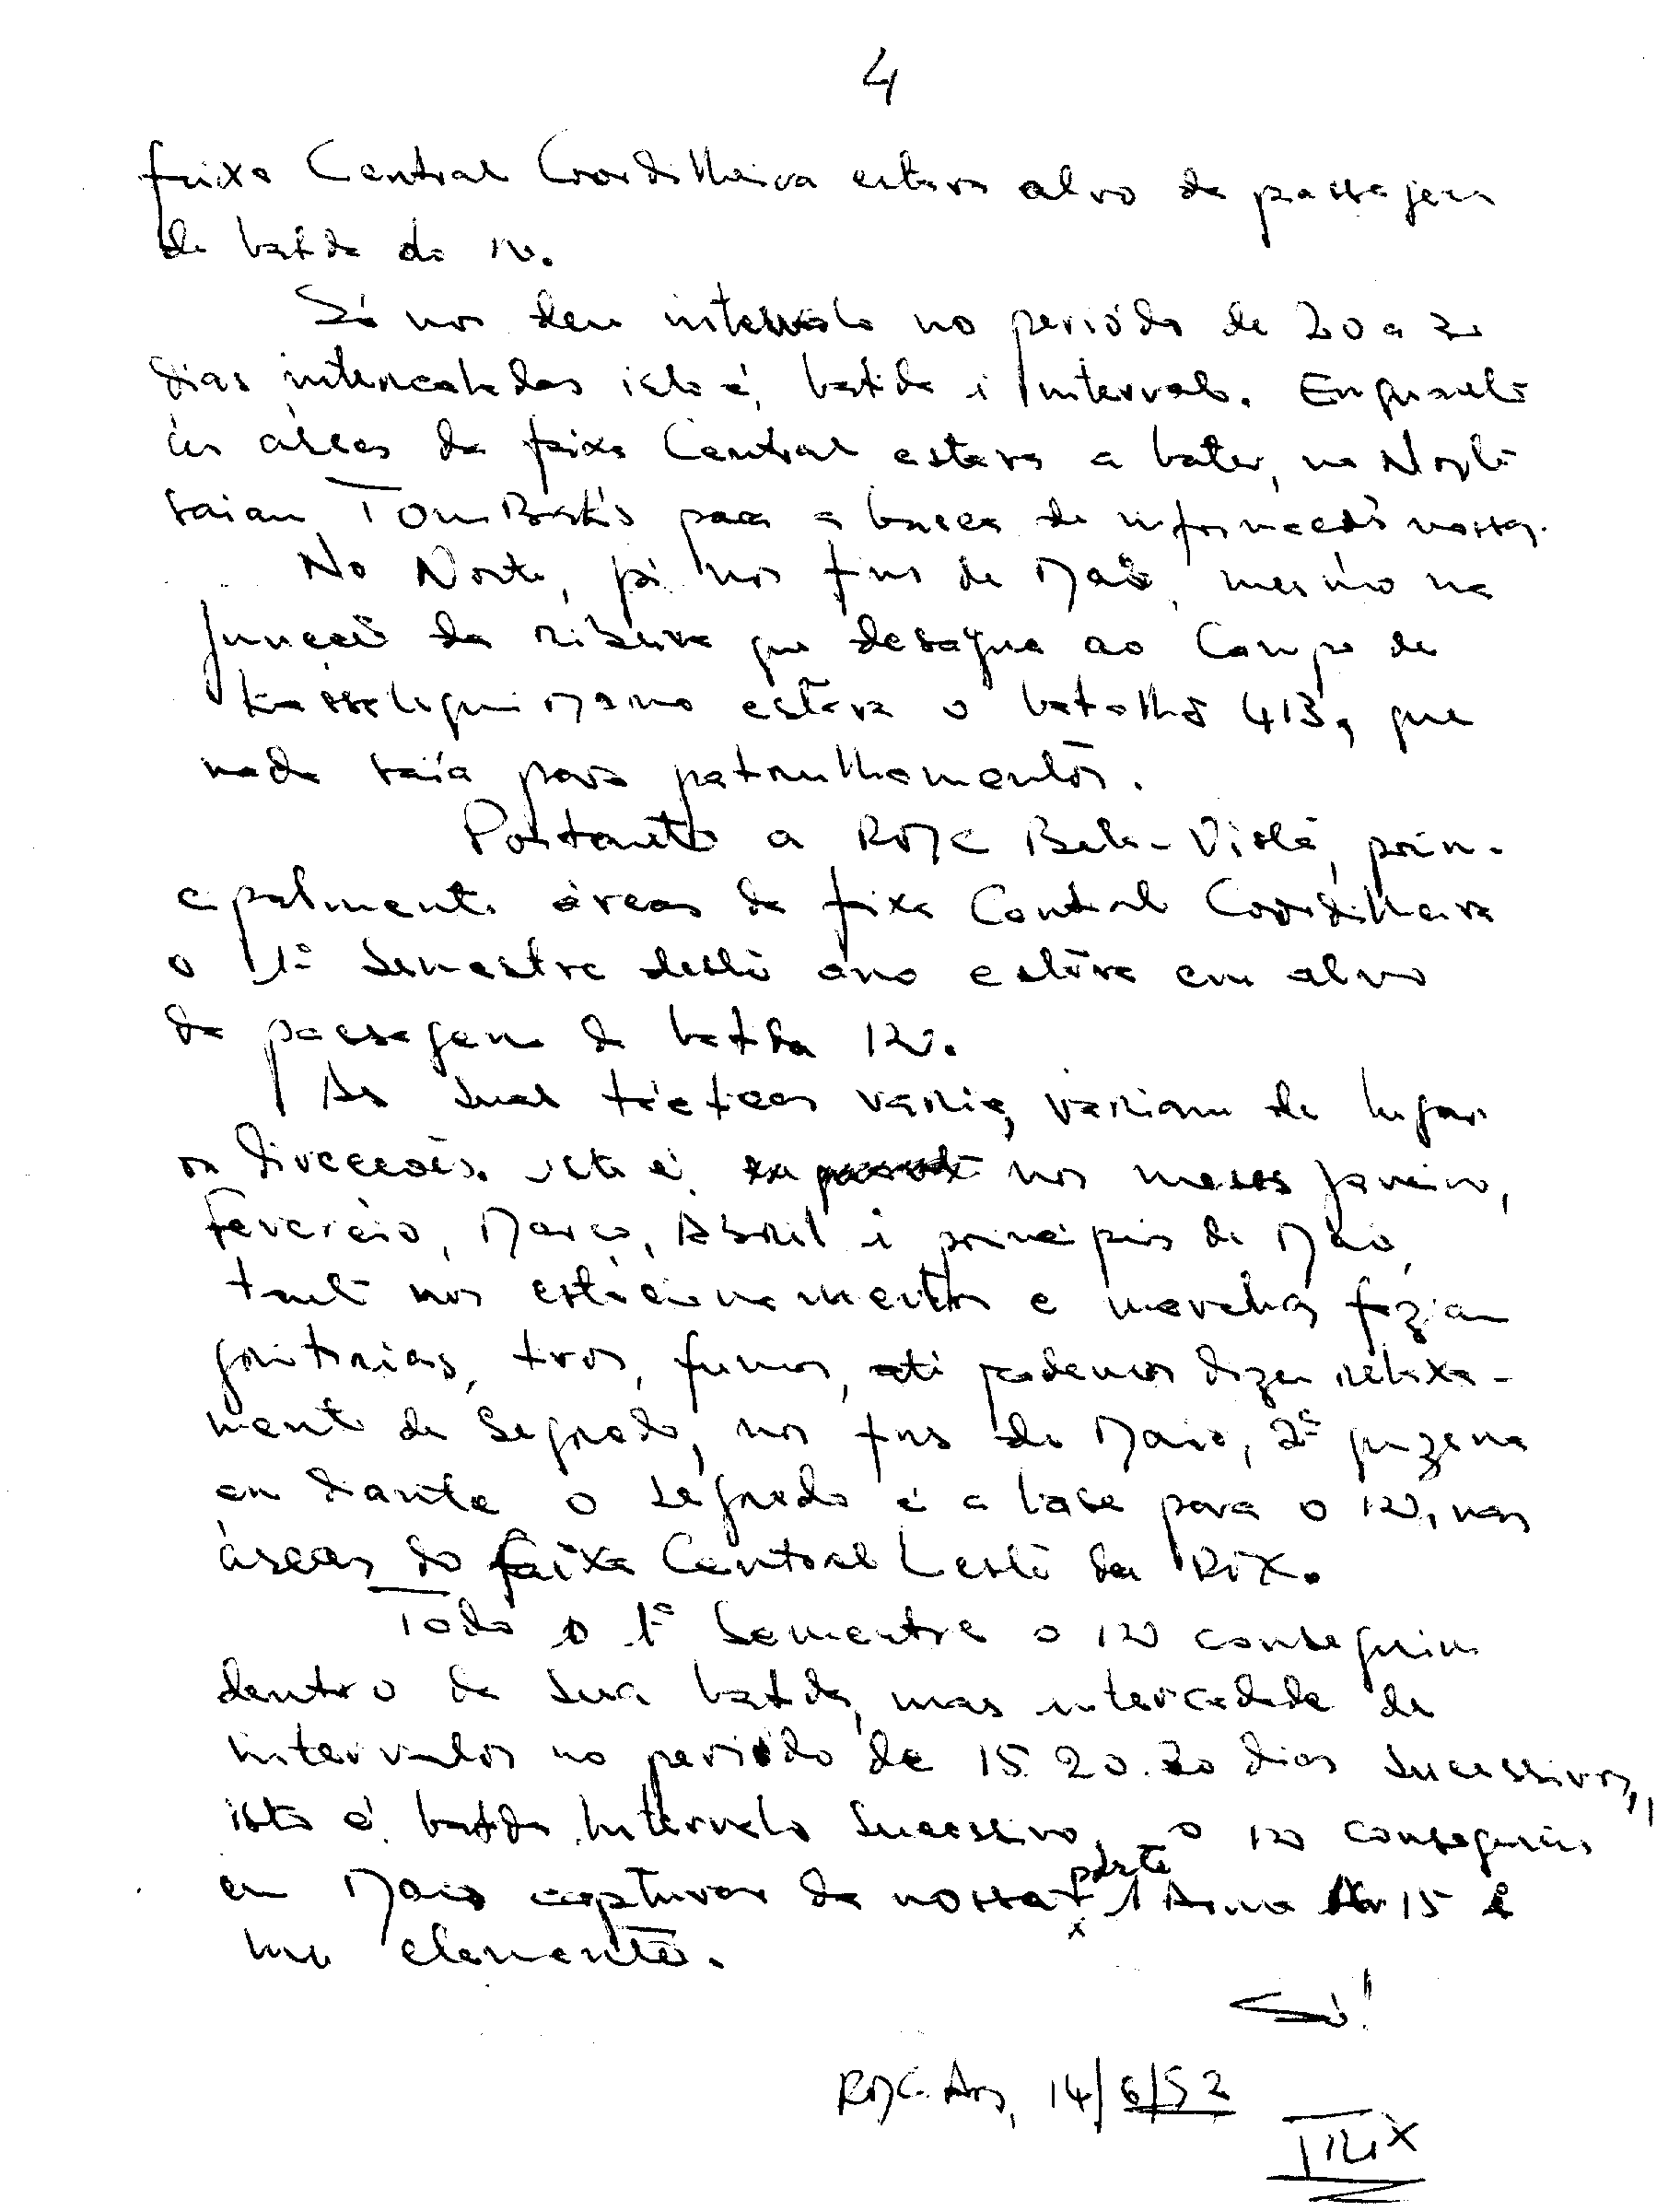 4
faixa Central Coordilheira estava alvo da passagem
de batida do IN.
Só nos deu intervalo no periódo de 20 a 30
dias intercaladas isto é, batida i intervalo. Enquanto
as áreas da faixa Central estava a bater, no Norte
saiam para a busca de informacões nossas.
No Norte, já nos fins de Maio, mesmo na
junccão da ribeira que desagua ao Campo de
estava o batalhão 413, que
nada saía para patrulhamentos.
Portanto a Bela-Vista, prin-
cipalmente áreas da faixa Central Coordilheira
o 1º Semestre deste ano estava em alvo
da passagem da batida IN.
As suas tácticas varia, variam de lugar
ou direccões. isto é, nos meses Janeiro,
Fevereiro, Março, Abril i principios de Maio,
tanto nos estacionamentos e marchas faziam
gritarias, tiros, fumos, até podemos dizer relaxa-
mento de Segredo, nos fins de Maio, 2ª quzena
em diante o segredo é a base para o IN, nas
áreas da faixa Central Leste da
Todo o 1º Semestre o IN conseguiu
dentro da sua batida, mas intercadada de
intervalos no periódo de 15. 20. 30 dias sucessivos,
isto é, batida, Intervalo Sucessivo, o IN conseguiu
em Maio capturar da nossa parte 1 Arma 15 e
um elemento.
Só!
14/6/52